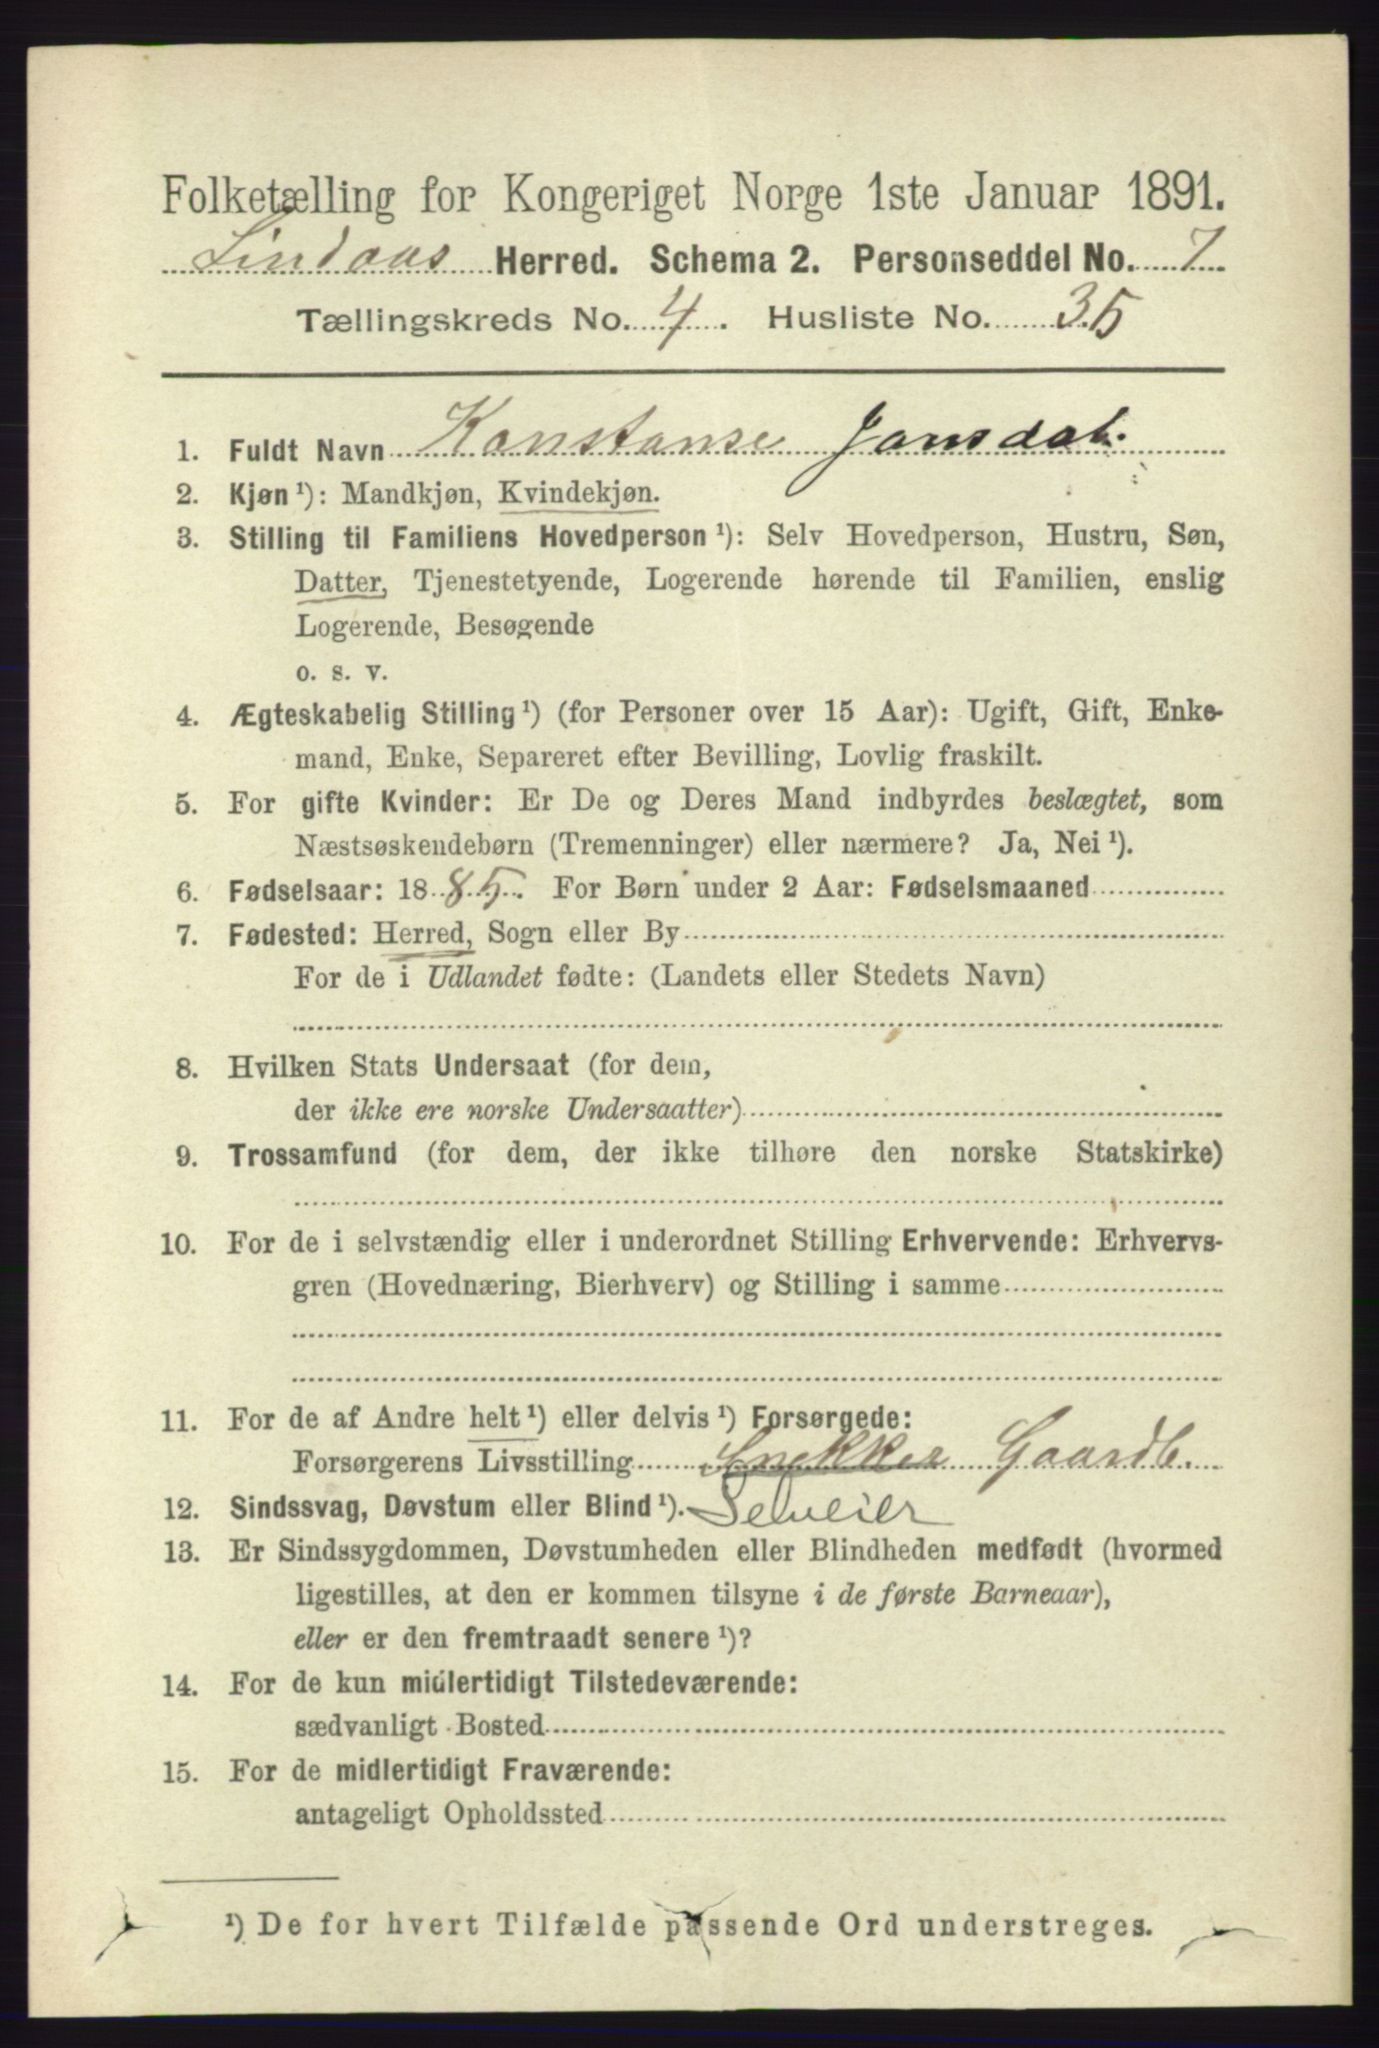 Folketælling for Kongeriget Norge 1ste Januar 1891.
Lindaas Herred. Schema 2. Personseddel No. 7
Tællingskreds No. 4. Husliste No. 35
1. Fuldt Navn Konstanse Jansdat.
2. Kjøn ¹): Mandkjøn, Kvindekjøn.
3. Stilling til Familiens Hovedperson ¹): Selv Hovedperson, Hustru, Søn,
Datter, Tjenestetyende, Logerende hørende til Familien, enslig
Logerende, Besøgende
o. s. v.
4. Ægteskabelig Stilling ¹) (for Personer over 15 Aar): Ugift, Gift, Enke-
mand, Enke, Separeret efter Bevilling, Lovlig fraskilt.
5. For gifte Kvinder: Er De og Deres Mand indbyrdes beslægtet, som
Næstsøskendebørn (Tremenninger) eller nærmere? Ja, Nei ¹).
6. Fødselsaar: 1885. For Børn under 2 Aar: Fødselsmaaned
7. Fødested: Herred, Sogn eller By
For de i Udlandet fødte: (Landets eller Stedets Navn)
8. Hvilken Stats Undersaat (for dem,
der ikke ere norske Undersaatter)
9. Trossamfund (for dem, der ikke tilhøre den norske Statskirke)
10. For de i selvstændig eller i underordnet Stilling Erhvervende: Erhvervs-
gren (Hovednæring, Bierhverv) og Stilling i samme
11. For de af Andre helt ¹) eller delvis ¹) Forsørgede:
Forsørgerens Livsstilling Snekker Gaardb.
12. Sindssvag, Døvstum eller Blind ¹). Selveier
13. Er Sindssygdommen, Døvstumheden eller Blindheden medfødt (hvormed
ligestilles, at den er kommen tilsyne i de første Barneaar),
eller er den fremtraadt senere ¹)?
14. For de kun midlertidigt Tilstedeværende:
sædvanligt Bosted
15. For de midlertidigt Fraværende:
antageligt Opholdssted
¹) De for hvert Tilfælde passende Ord understreges.